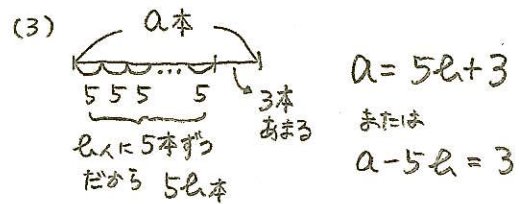 (3)
a本
5 5 5 … 5
3本
あまる
b人に5本ずつ
だから 5b本
a = 5b + 3
または
a - 5b = 3